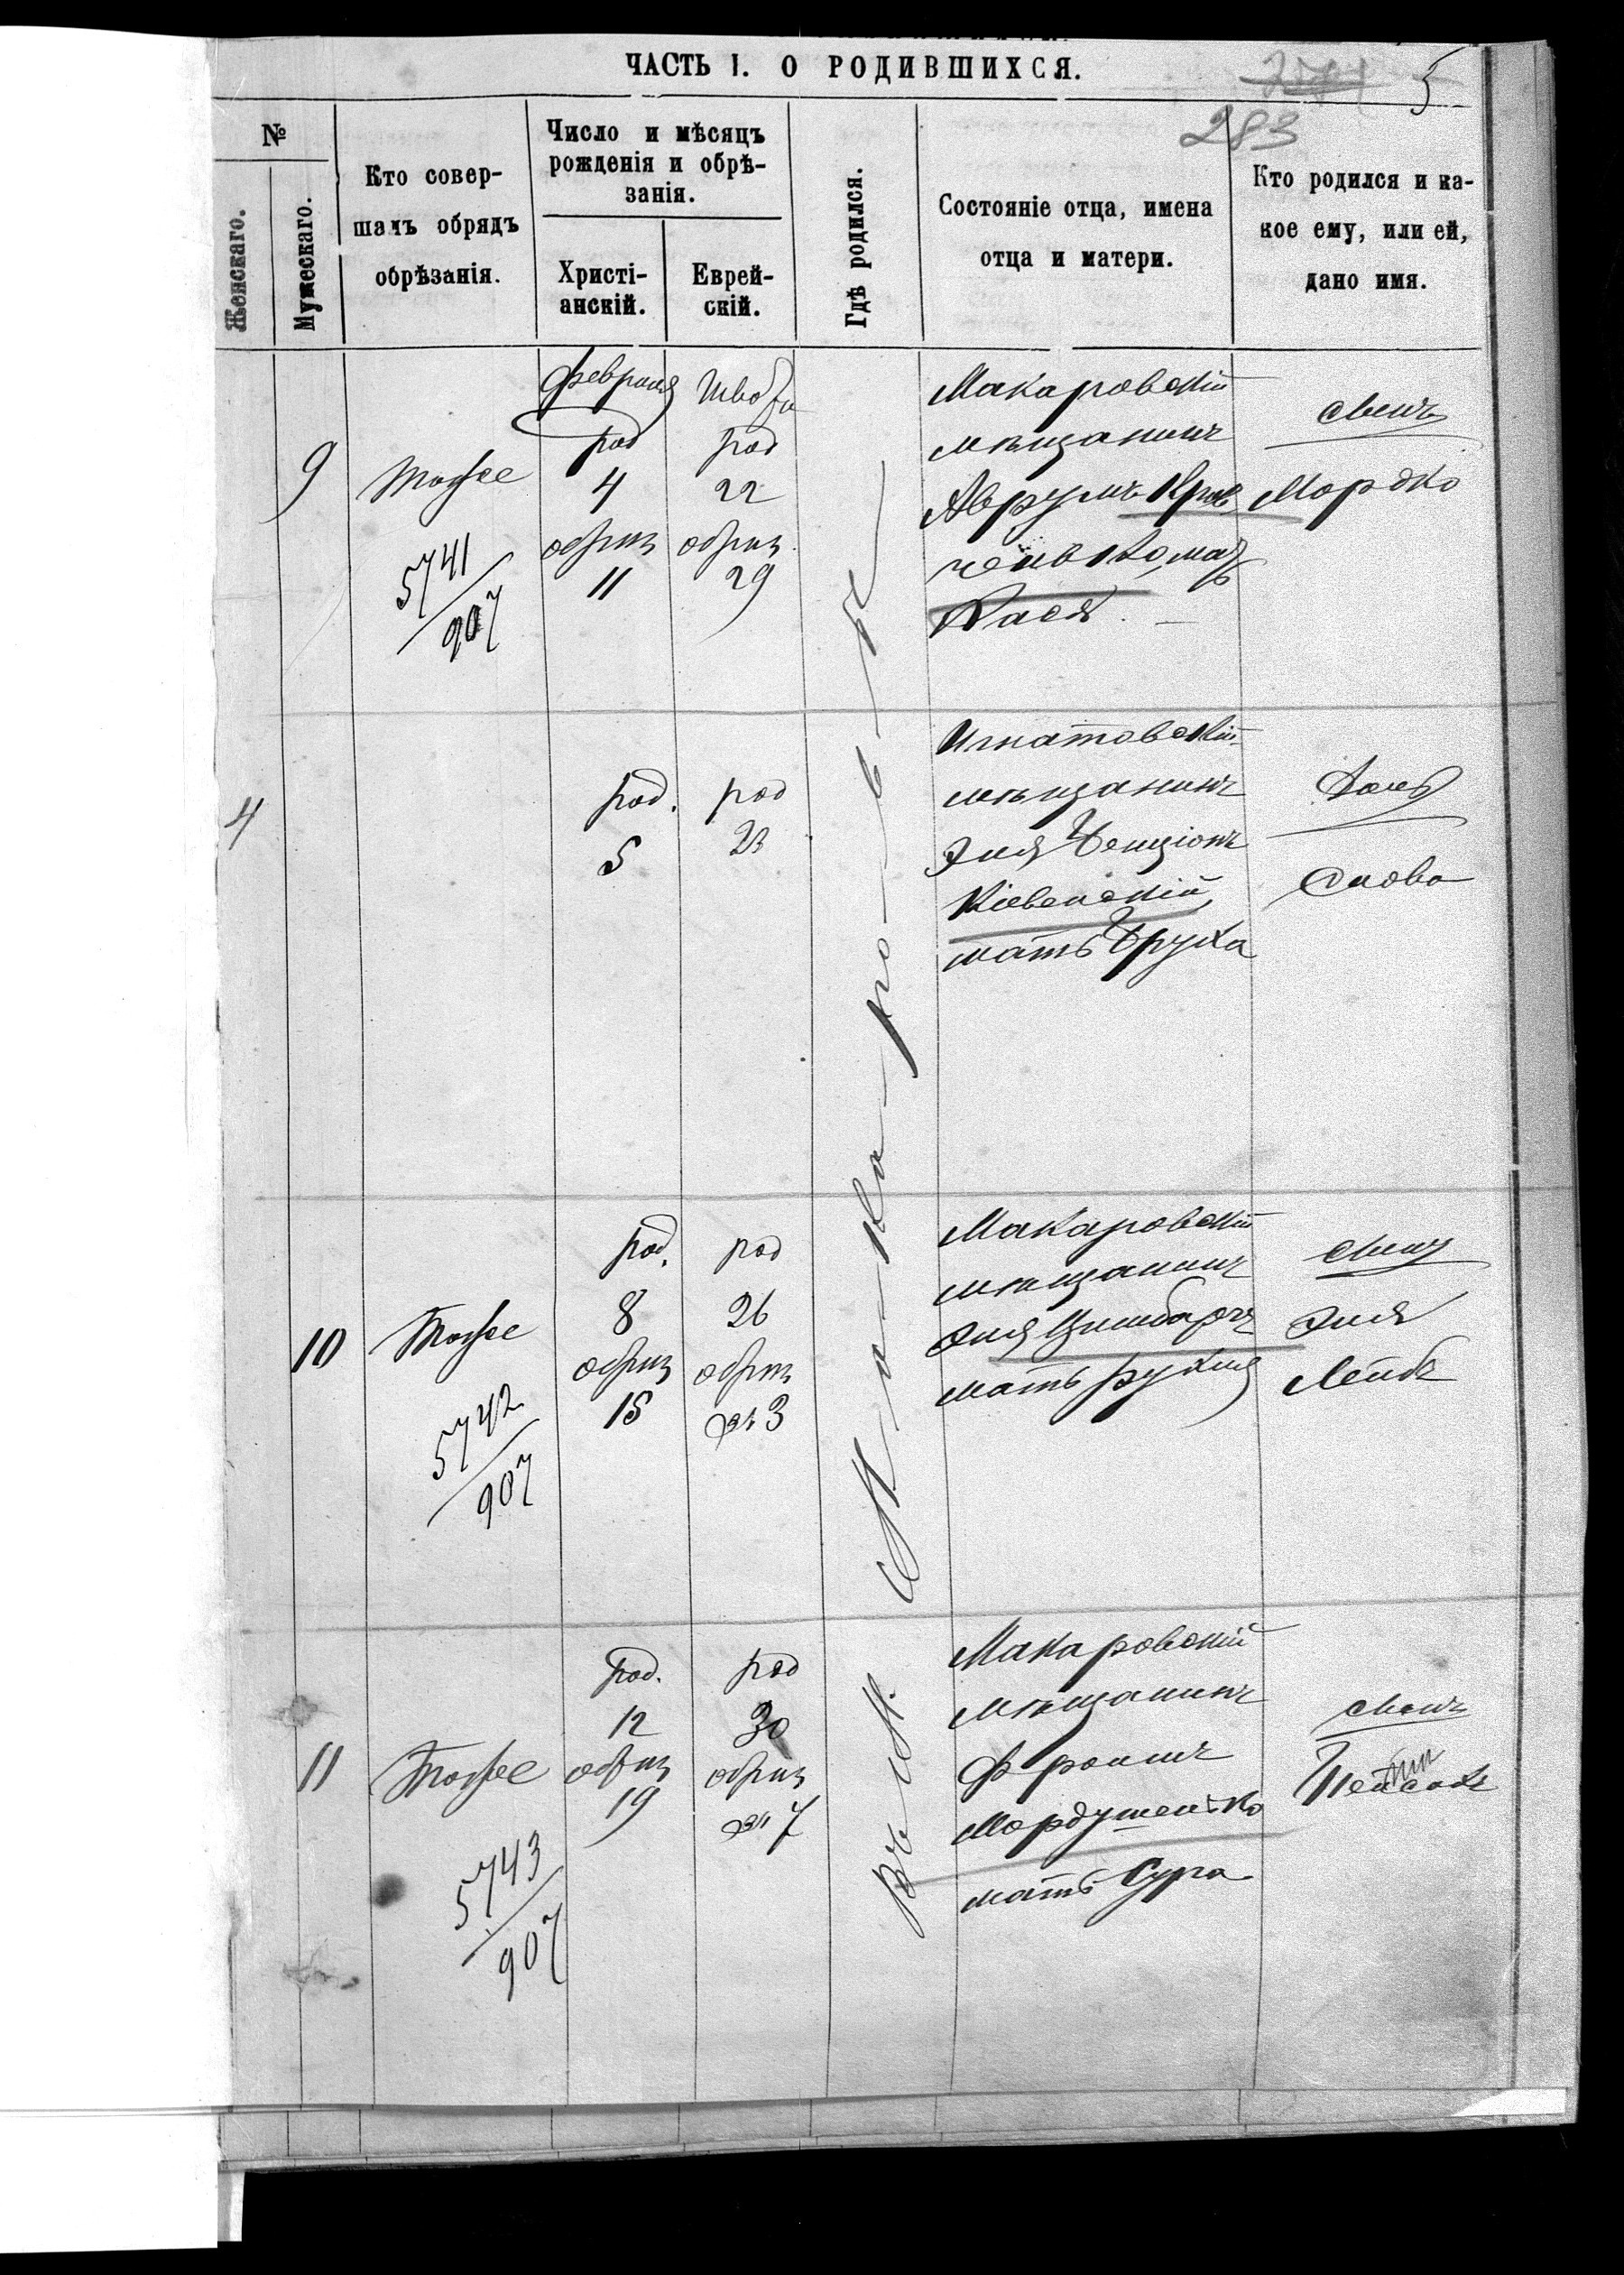 ЧАСТЬ I. О РОДИВШИХСЯ.
5
283
№
Женскаго.
Мужескаго.
Кто совер-
шалъ обрядъ
обрѣзанія.
Число и мѣсяцъ
рожденія и обрѣ-
занія.
Христі-
анскій.
Еврей-
скій.
Гдѣ родился.
Состояніе отца, имена
отца и матери.
Кто родился и ка-
кое ему, или ей,
дано имя.
Въ М. Макаровѣ
9
Тотже
5741/907
Февраля
род
4
обрѣз
11
Швота
род
22
обрѣз
29
Макаровскій
мѣщанинъ
Аврумъ Крав
ченько, мать
Бася
сынъ
Мордко
4
род.
5
род
23
Игнатовскій
мѣщанинъ
Эля Бенціонъ
Кіевенскій
мать Бруха
дочь
Слова
10
Тотже
5742/907
род.
8
обрѣз
15
род
26
обрѣз
3
Макаровскій
мѣщанинъ
Эля Цимбаръ
мать Рухля
сынъ
Эля
Лейбъ
11
Тотже
5743/907
род.
12
обрѣз
19
род
30
обрѣз
7
Макаровскій
мѣщанинъ
Фроимъ
Мордушенько
мать Сура
сынъ
Пейсахъ